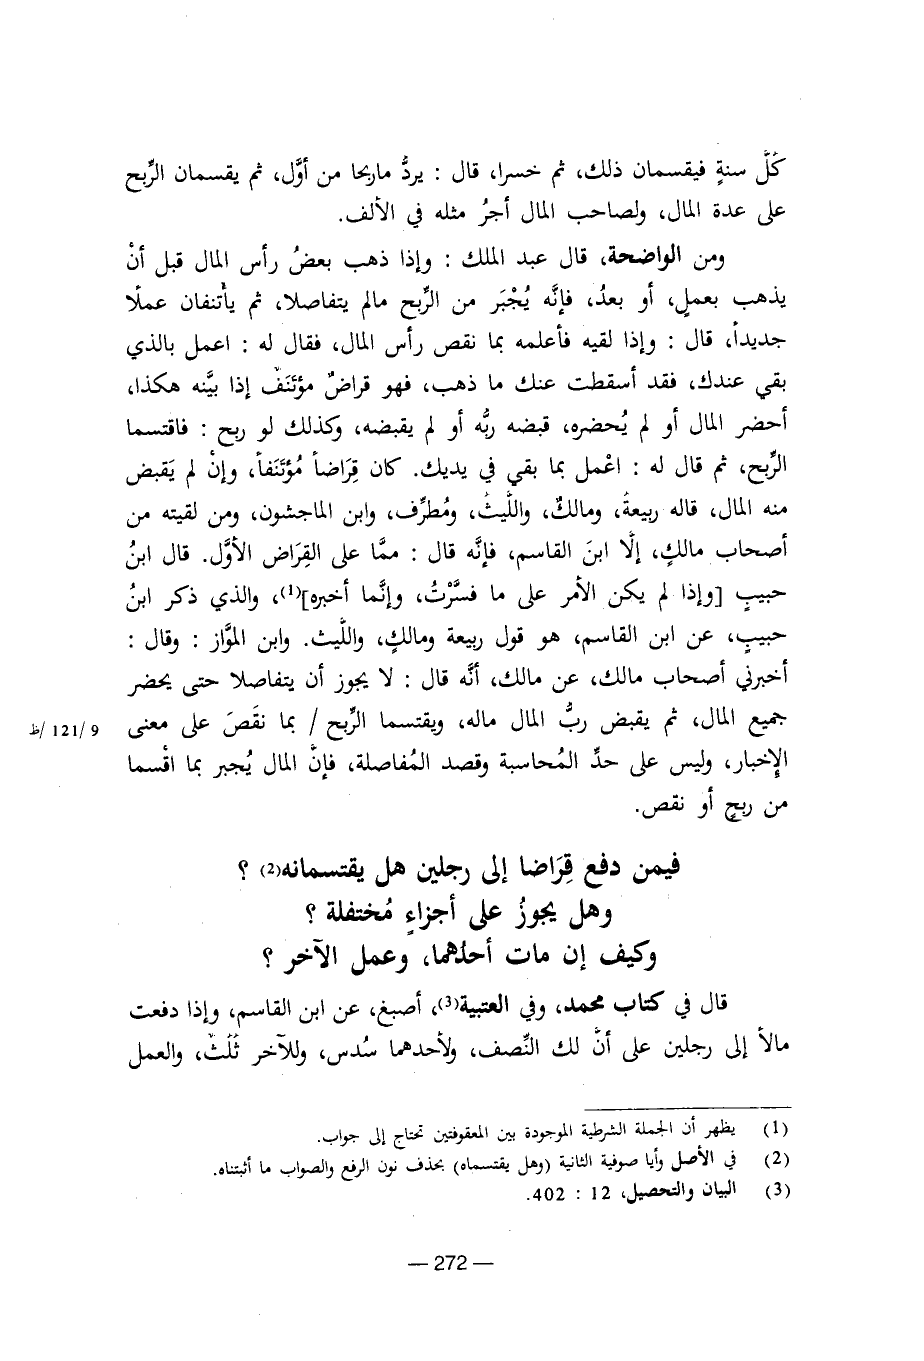 كُلَّ سنةٍ فيقسمان ذلك، ثم خسرا، قال : يردُّ ماربحا من أوَّل، ثم يقسمان الرِّبح
على عدة المال، ولصاحب المال أجرُ مثله في الألف.
ومن الواضحة، قال عبد الملك : وإذا ذهب بعضُ رأس المال قبل أنْ
يذهب بعملٍ، أو بعدُ، فإنَّه يُجْبَر من الرِّبح مالم يتفاصلا، ثم يأتنفان عملًا
جديداً، قال : وإذا لقيه فأعلمه بما نقص رأس المال، فقال له : اعمل بالذي
بقي عندك، فقد أسقطت عنك ما ذهب، فهو قراضٌ مؤتَنَفٌ إذا بيَّنه هكذا،
أحضر المال أو لم يُحضره، قبضه ربُّه أو لم يقبضه، وكذلك لو ربح : فاقتسما
الرِّبح، ثم قال له : اعْمل بما بقي في يديك. كان قِرَاضاً مُؤتَنَفاً، وإنْ لم يَقبض
منه المال، قاله ربيعةُ، ومالكٌ، والليثُ، ومُطرِّف، وابن الماجشون، ومن لقيته من
أصحاب مالكٍ، إلَّا ابنَ القاسم، فإنَّه قال : ممَّا على القِرَاض الأوَّل. قال ابنُ
حبيبٍ [وإذا لم يكن الأمر على ما فسَّرْتُ، وإنَّما أخبره](1)، والذي ذكر ابنُ
حبيبٍ، عن ابن القاسم، هو قول ربيعة ومالكٍ، واللَّيث. وابن الموَّاز : وقال :
أخبرني أصحاب مالك، عن مالك، أنَّه قال : لا يجوز أن يتفاصلا حتى يحضر
جميع المال، ثم يقبض ربُّ المال ماله، ويقتسما الرِّبح / بما نقَصَ على معنى
9 /121 /ظ
الإخبار، وليس على حدِّ المُحاسبة وقصد المُفاصلة، فإنَّ المال يُجبر بما اقْسما
من ربحٍ أو نقص.
فيمن دفع قِرَاضا إلى رجلين هل يقتسمانه(2) ؟
وهل يجوزُ على أجزاءٍ مُختفلة ؟
وكيف إن مات أحدُهما، وعمل الآخر ؟
قال في كتاب محمد، وفي العتبية(3)، أصبغ، عن ابن القاسم، وإذا دفعت
مالاً إلى رجلين على أنَّ لك النِّصف، ولأحدهما سُدس، وللآخر ثُلُثٌ، والعمل
(1) يظهر أن الجملة الشرطية الموجودة بين المعقوفتين تحتاج إلى جواب.
(2) في الأصل وأيا صوفية الثانية (وهل يقتسماه) بحذف نون الرفع والصواب ما أثبتناه.
(3) البيان والتحصيل، 12 : 402.
— 272 —